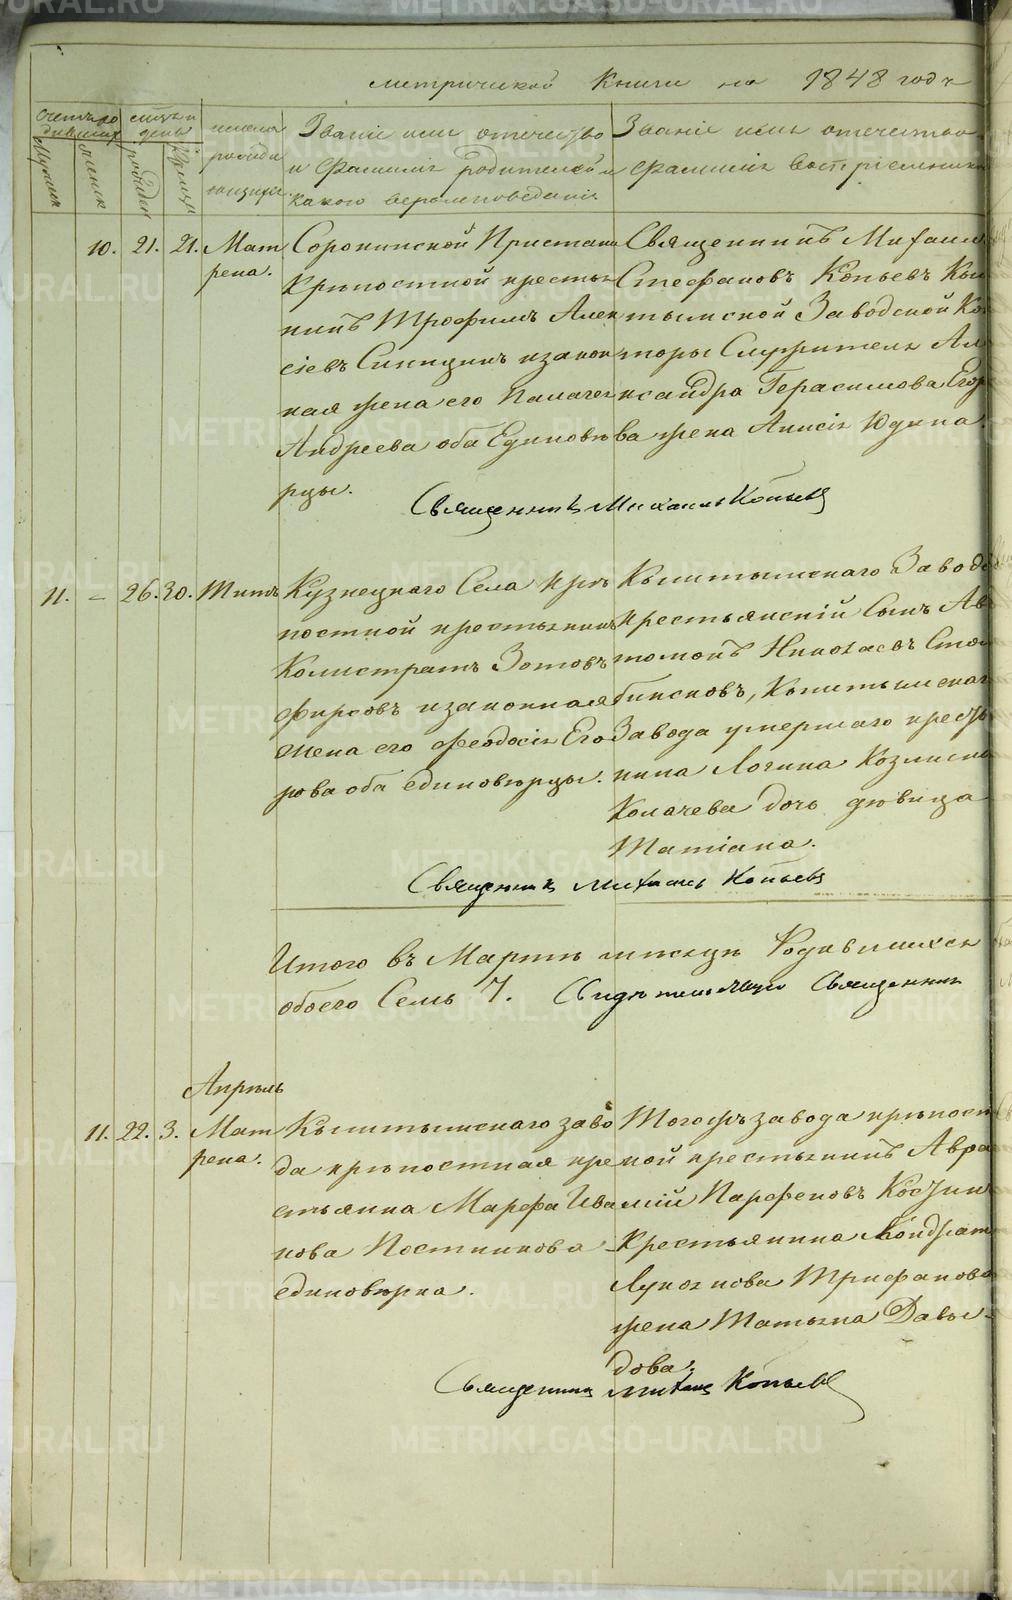 метрической книги на 1848 годъ
счетъ ро
дившихся
мужеск
женск
мѣсяцъ и
день
рожден
крещен
имена
родив
шихся.
Званіе имя отечество
и фамилія родителей и
какого вѣроисповеданія
Званіе имя отечество
фамилія воспріемников
10. 21. 21. Мат
рена.
Сорокинской Пристани
крѣпостной крестья
нинъ Трофимъ Алек
сіевъ Синицинъ изакон
ная жена его Палагея
Андреева оба Единовѣ
рцы.
Священникъ Михаил
Стефановъ Копьевъ Кы
тымской Заводской Ко
торы Служителя Ал
ксандра Герасимова Егор
ва жена Анисія Юдина.
Священникъ Михаилъ Копьевъ
11. — 26. 30. Титъ
Кузнецкаго Села крѣ
постной крестьянинъ
Калистратъ Зотовъ
Фирсовъ изаконная
жена его Феодосія Его
рова оба единовѣрцы.
Кыштымскаго Завода
крестьянскій Сынъ Ав
томонъ Николаевъ Стол
бинсковъ, Кыштымскаг
Завода умершаго кресть
нина Логина Козмина
Колачева дочь дѣвица
Татіана.
Священникъ Михаилъ Копьевъ
Итого въ Мартѣ мѣсяцѣ Родившихся
обоего Семь 7. Свидѣтельствую Священник
Апрѣль
11. 22. 3. Мат
рена.
Кыштымскаго заво
да крѣпостная кре
стьянка Марфа Ива
нова Постникова
единовѣрка.
Тогожъ завода крѣпост
ной крестьянинъ Авра
мій Парфеновъ Костин
Крестьянина Кондрат
Лукоянова Трифанова
жена Татьяна Давы-
дова.
Священникъ Михаилъ Копьевъ
METRIKI.GASO-URAL.RU